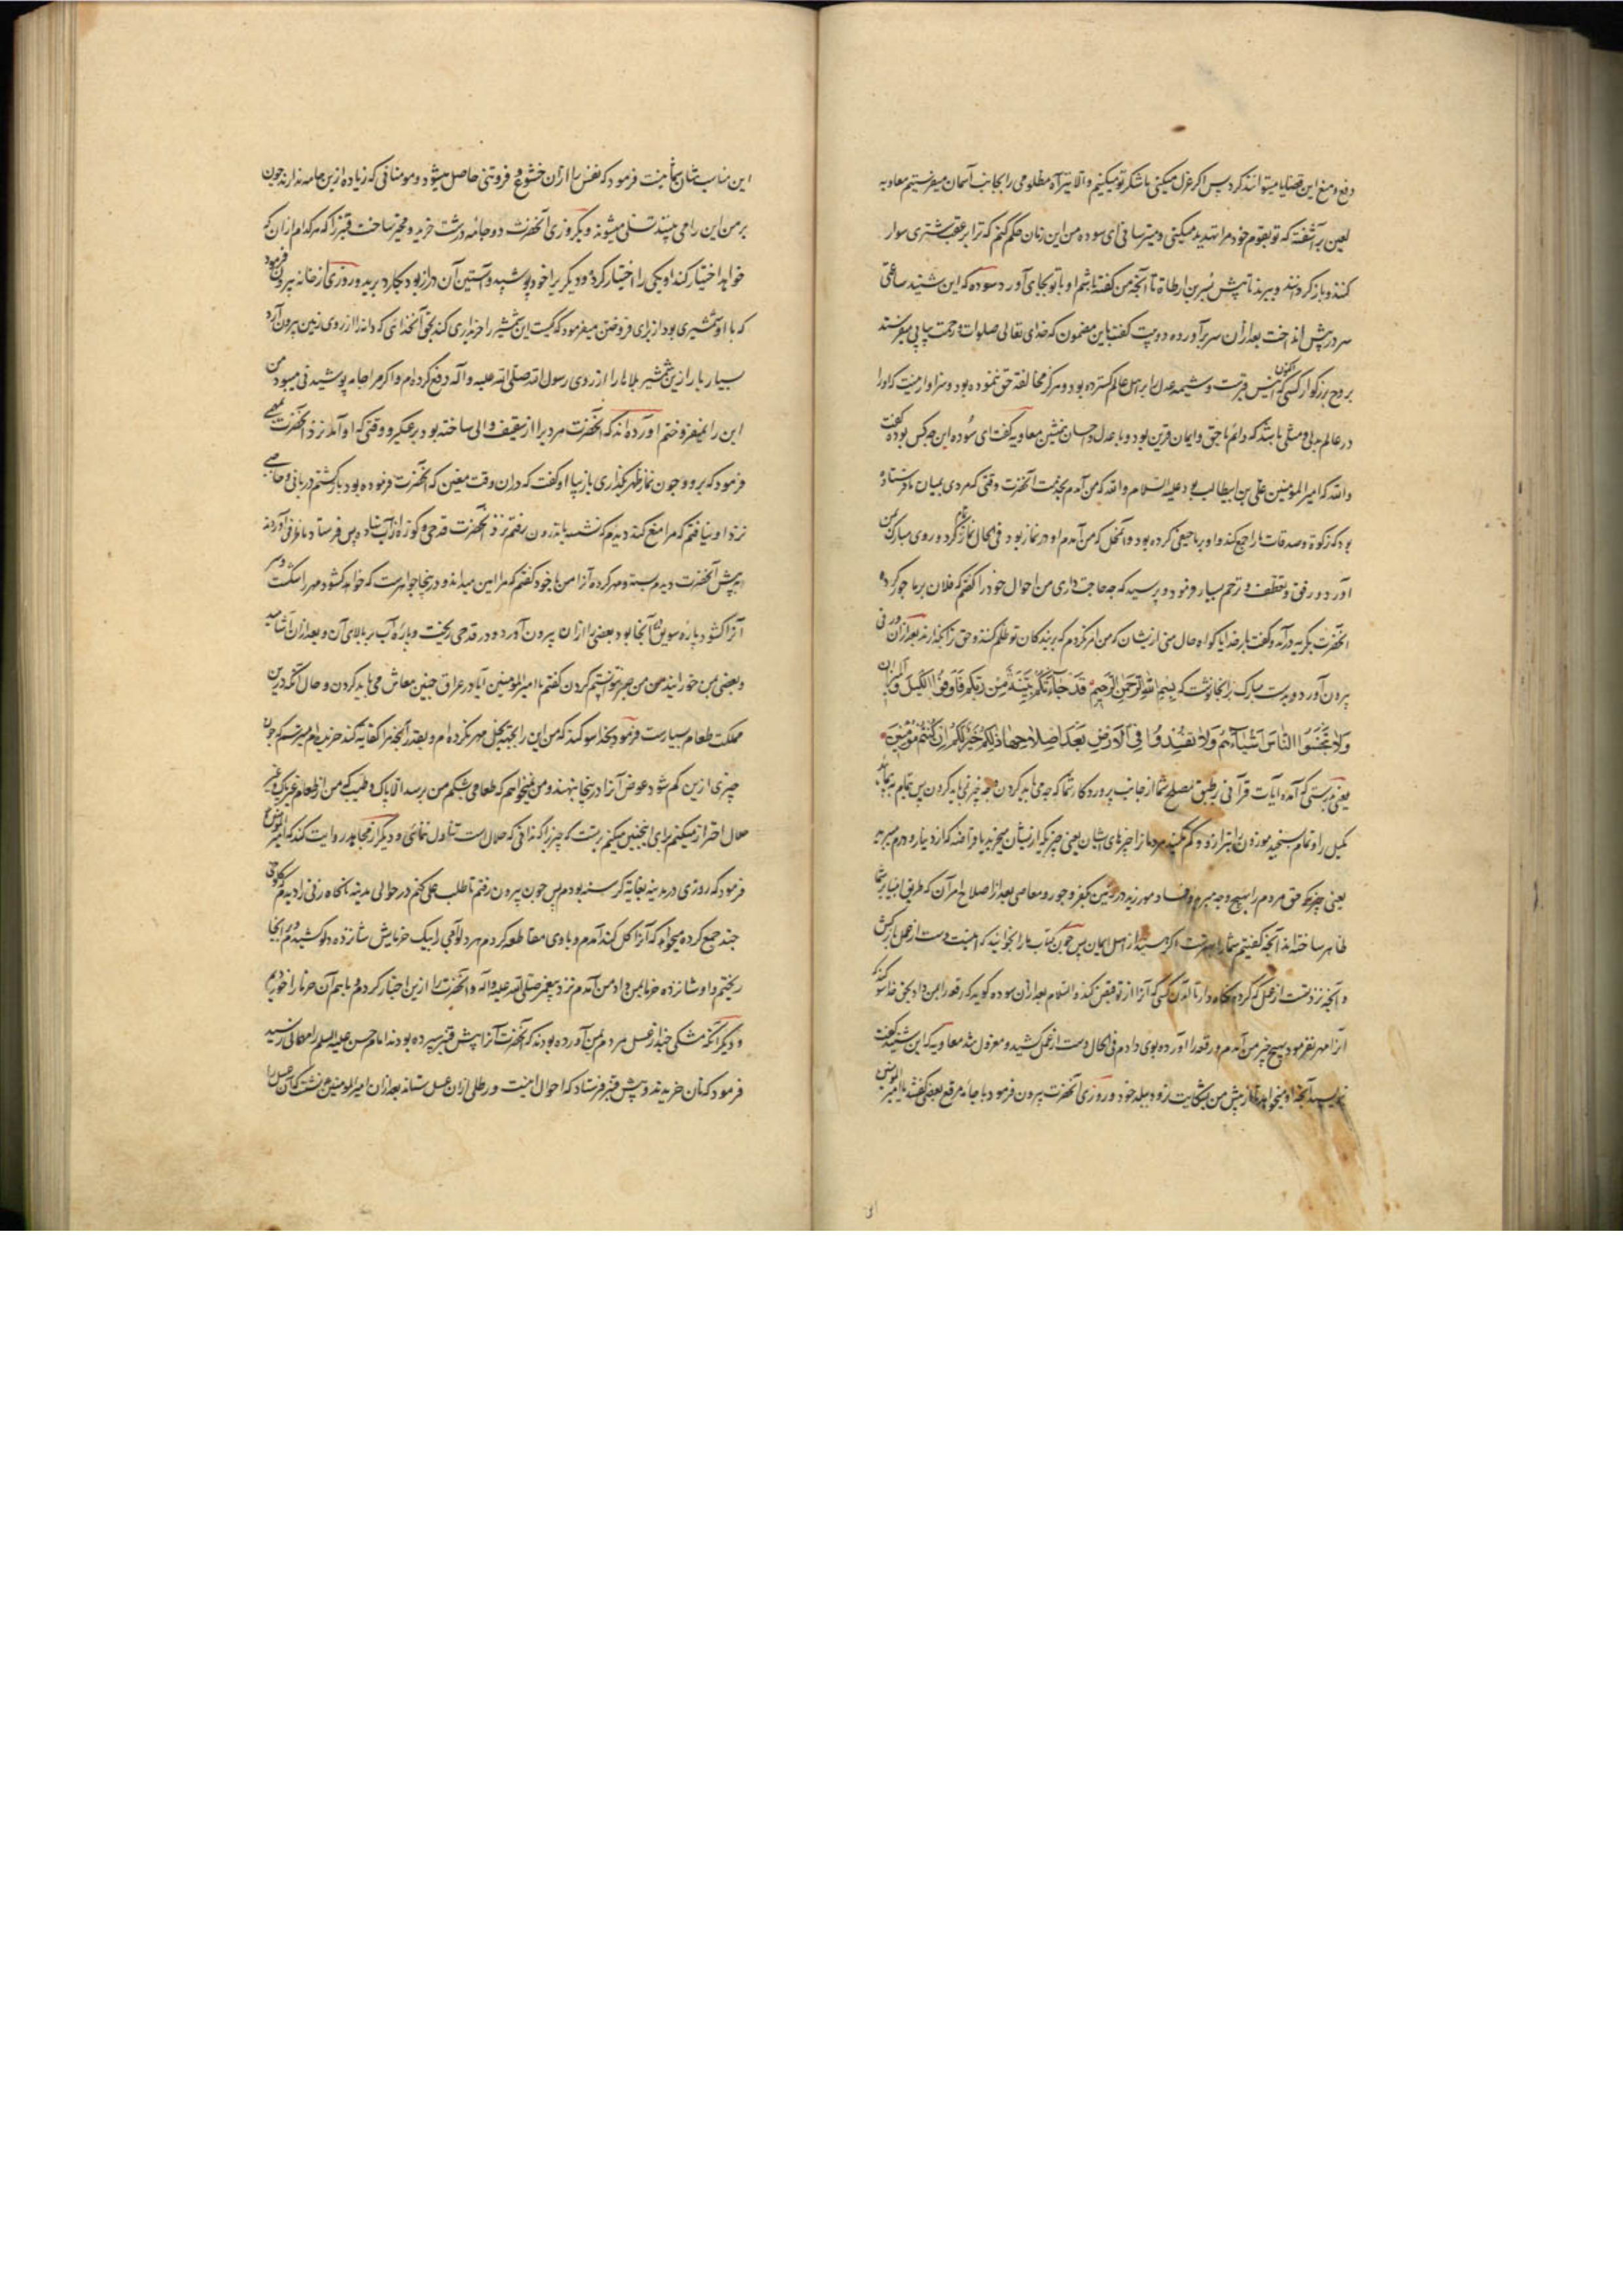 دفع و منع این قضایا میتوانند کرد پس اکر عزل میکنی ما شکر تو میکنیم و الا تیر آه مظلومی را بجانب آسمان میفرستیم معاویه
لعین بر آشفته که تو بقوم خود مرا تهدید میکنی و میترسانی ای سوده من این زمان حکم کنم که ترا بر عقب شتری سوار
کنند و باز کردانند و ببرند تا پیش بسر بن ارطاة تا آنچه من کفته باشم او با تو بجای آورد سوده که این شنید ساعتی
سر در پیش انداخت بعد از آن سر برآورده دو بیت کفت باین مضمون که خدای تعالی صلوات و رحمت پیاپی بفرستد
بر روح بزرکوار کسی که اکنون انیس قبرست و شیمه عدل بر اهل عالم کسترده بود و هرکز مخالفة حق ننموده بود و سزاوار نیست که او را
در عالم بدلی و مثلی باشد که دایم با حق و ایمان قرین بود و با عدل و احسان همنشین معاویه کفت ای سوده این چه کس بود کفت
والله که امیر المومنین علی بن ابیطالب بود علیه السلام والله که من آمدم بخدمت آنحضرت وقتی که مردی بمیان ما فرستاده
بود که زکوة و صدقات ما را جمع کند و او بر ما حیفی کرده بود و آنمحل که من آمدم او در نماز بود فی الحال نماز تمام کرد و روی مبارک بمن
آورد و رفق و تعطف و ترحم بسیار فرمود و پرسید که چه حاجت داری من احوال خود را کفتم که فلان بر ما جور کرده
آنحضرت بکریه درآمد و کفت بار خدایا کواه حال منی از یشان که من امر نکردم که بر بندکان تو ظلم کنند و حق ترا بکذارند بعد از آن ورقی
بیرون آورد و بدست مبارک در انجا نوشت که بسم الله الرحمن الرحیم قد جاءتکم بینة من ربکم فاوفوا الکیل و المیزان
ولا تبخسوا الناس اشیاءهم ولا تفسدوا فی الارض بعد اصلاحها ذلکم خیر لکم ان کنتم مؤمنین
یعنی بدرستی که آمده آیات قرآنی بر طبق مصلح شما از جانب پروردکار شما که چه می باید کردن و چه چیز نمی باید کردن پس تمام بدهید
کیل را و تمام بسنجید موزون را بترازو و کم مکنید مردم را از چیزهای ایشان یعنی چیزی که از یشان میخرید یا قراضه که از دینار و درم میبرید
یعنی چیزی که حق مردم را بهیچ وجه مبرید و فساد مورزید در زمین بکفر و جور و معاصی بعد از اصلاح امر آن که طریق انبیا بر شما
ظاهر ساخته اند آنچه کفتیم شما را بهترست اکر هستید از اهل ایمان پس چون کتاب ما را بخوانید که اینست دست از عمل بازکش
و آنچه نزد تست از عمل که کرده نکاه دار تا آمدن کسی که آنرا از تو قبض کند والسلام بعد از آن سوده کوید که رقعه را بمن داد بحق خدا سوکند که
آنرا مهر نفرمود بهیچ چیز من آمدم و رقعه را آورده بوی دادم فی الحال دست از عمل کشید و معزول شد معاویه که این شنید کفت
بنویسید آنچه او میخواهد تا از پیش من بی شکایت رود ببلد خود و روزی آنحضرت بیرون فرمود با جامه مرقع بعضی کفتند یا امیر المومنین
این مناسب شان شما نیست فرمود که نفس را از آن خشوع و فروتنی حاصل میشود و مومنانی که زیاده ازین جامه ندارند چون
بر من این را می بینند تسلی میشوند و یکروزی آنحضرت دو جامه درشت خرید و مخیر ساخت قنبر را که هر کدام از آن که
خواهد اختیار کند او یکی را اختیار کرد و دیکر یرا خود پوشید و آستین آن دراز بود بکارد برید و روزی از خانه بیرون فرمود
که با او شمشیری بود از برای فروختن میفرمود که کیست این شمشیر را خریداری کند بحق آنخدائی که دانه را از روی زمین بیرون آورد
بسیار بار ازین شمشیر بلاها را از روی رسول الله صلی الله علیه و آله دفع کرده ام و اکر مرا جامه پوشیدنی میبود من
این را نمیفروختم آورده اند که آنحضرت مردیرا از ثقیف والی ساخته بود بر عکبر و وقتی که او آمد نزد آنحضرت
فرمود که برو و چون نماز ظهر بکذاری باز بیا او کفت که در آن وقت معین که آنحضرت فرموده بود باز کشتم دربانی و حاجبی
نزد او نیافتم که مرا منع کند دیدم که نشسته باندرون رفتم نزد آنحضرت قدحی و کوزه از آب نهاده پس فرستاد تا ظرفی آوردند
پیش آنحضرت دیدم بسته و مهر کرده آنرا من با خود کفتم که مرا امین میداند و در ینجا جواهرست که خواهد کشود مهر را شکست
آنرا کشود پاره سویق در آنجا بود بعضی را از آن بیرون آورد و در قدحی ریخت و پاره آب بر بالای آن و بعد از آن آشامید
و بعضی بمن خورانید من صبر نتوانستم کردن کفتم یا امیر المومنین آیا در عراق چنین معاش می باید کردن و حال آنکه درین
مملکت طعام بسیارست فرمود بخدا سوکند که من این را بجهة بخل مهر نکرده ام و بقدر آنچه مرا کفایه کند خریده ام میترسم که چون
چیزی ازین کم شود عوض آنرا در ینجا بنهند و من نمیخواهم که طعامی بشکم من برسد الا پاک و طیب که من از طعام غیر پاک و غیر
حلال احتراز میکنم برای اینچنین میکنم بترس که چیزیرا که ندانی که حلال است تناول نمائی و دیکر از مجاهد روایت کنند که امیر المومنین
فرمود که روزی در مدینه بغایة کرسنه بودم پس چون بیرون رفتم تا طلب عملی کنم در حوالی مدینه ناکاه زنی را دیدم کلوخی
چند جمع کرده میخواهد که آنرا کل کند آمدم و با وی مقاطعه کردم هر دلو آبی را بیک خرمایش شانزده دلو کشیدم و در آنجا
ریختم و او شانزده خرما بمن داد من آمدم نزد پیغمبر صلی الله علیه و آله و آنحضرت را ازین اخبار کردم و با هم آن خرما را خوردیم
و دیکر آنکه مشکی چند از عسل مردم یمن آورده بودند که آنحضرت آنرا پیش قنبر سپرده بودند امام حسن علیه السلم را مهمانی رسید
فرمود که نان خریدند و پیش قنبر فرستاد که احوال اینست و رطلی از آن عسل ستاند بعد از آن امیر المومنین نشست که آن عسل را